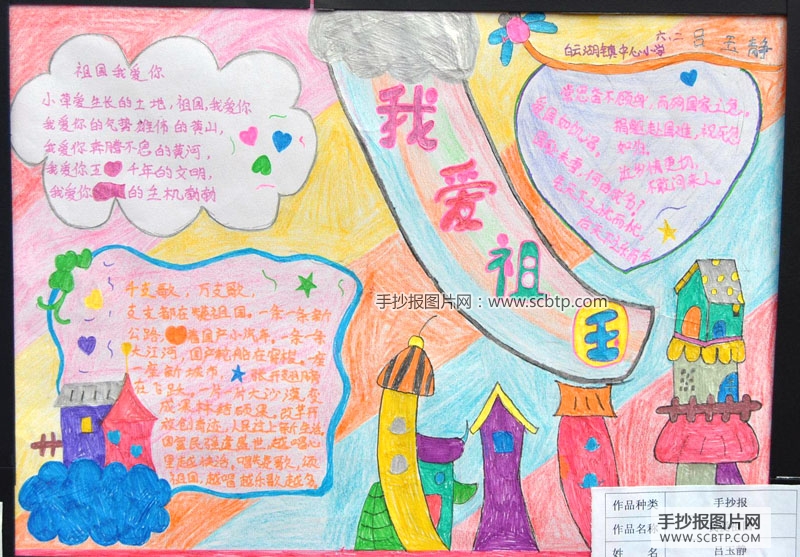 六.二 吕玉静
白云湖镇中心小学
祖国我爱你
小草爱生长的土地,祖国,我爱你
我爱你的气势雄伟的黄山,
我爱你奔腾不息的黄河,
我爱你五千年的文明,
我爱你的生机勃勃
我爱祖国
常思奋不顾身,而殉国家之急。
爱国如饥渴。
捐躯赴国难,视死忽
如归。
近乡情更切,
不敢问来人。
先天下之忧而忧,
后天下之乐而乐
千支歌,万支歌,
支支都在唱祖国。一条一条新
公路,国产小汽车。一条一条
大江河,国产轮船在穿梭。一座
一座新城市,张开翅膀
在飞跃。一片一片大沙漠变
成果林结硕果。改革开
放创奇迹,人民过上
国富民强
越唱心
里越快活。
祖国,越唱越乐歌越多
手抄报图片网:www.scbtp.com
作品种类 手抄报
作品名称
姓 名 吕玉静
手抄报图片网
www.SCBTP.com